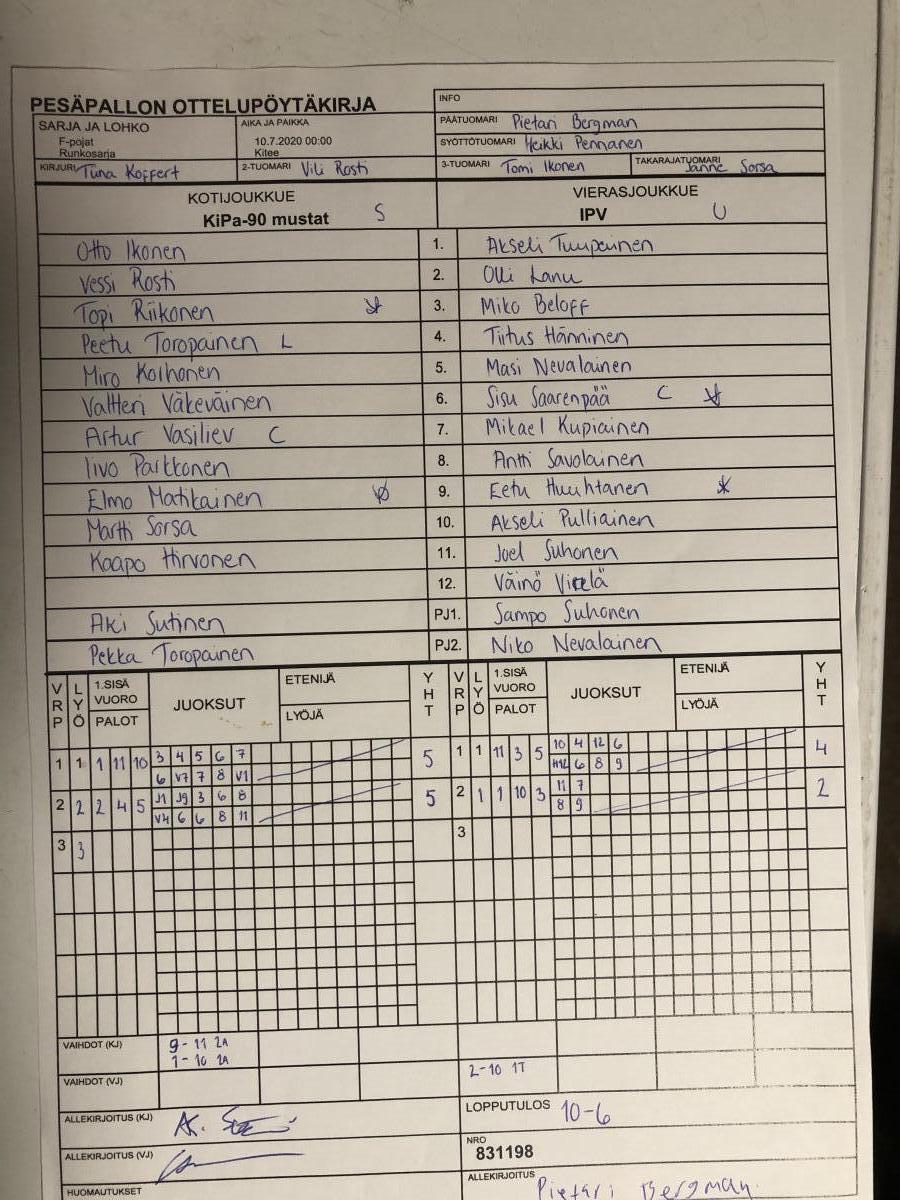 PESÄPALLON OTTELUPÖYTÄKIRJA
INFO
SARJA JA LOHKO
F-pojat
Runkosarja
AIKA JA PAIKKA
10.7.2020 00:00
Kitee
PÄÄTUOMARI Pietari Bergman
SYÖTTÖTUOMARI Heikki Pennanen
KIRJURI Tuna Koffert
2-TUOMARI Vili Rosti
3-TUOMARI Tomi Ikonen
TAKARAJATUOMARI Janne Sorsa
KOTIJOUKKUE
KiPa-90 mustat S
VIERASJOUKKUE
IPV U
Otto Ikonen 1. Akseli Tuupainen
Vessi Rosti 2. Olli Lanu
Topi Riikonen 3. Miko Beloff
Peetu Toropainen L 4. Tiitus Hänninen
Miro Korhonen 5. Masi Nevalainen
Valtteri Väkeväinen 6. Sisu Saarenpää C
Artur Vasiliev C 7. Mikael Kupiainen
Iivo Parkkonen 8. Antti Savolainen
Elmo Matikainen 9. Eetu Huuhtanen
Martti Sorsa 10. Akseli Pulliainen
Kaapo Hirvonen 11. Joel Suhonen
12. Väinö
Aki Sutinen PJ1. Sampo Suhonen
Pekka Toropainen PJ2. Niko Nevalainen
VRP LYÖ 1.SISÄ VUORO PALOT JUOKSUT ETENIJÄ LYÖJÄ YHT VRP LYÖ 1.SISÄ VUORO PALOT JUOKSUT ETENIJÄ LYÖJÄ YHT
1 1 1 11 10 3 4 5 6 7 5 1 1 11 3 5 10 4 12 6 4
6 V7 7 8 V1 6 8 9
2 2 2 4 5 J1 J9 3 6 8 5 2 1 1 10 3 11 7 2
V4 6 6 8 11 8 9
3 3 3
VAIHDOT (KJ) 9-11 2A
1-10 2A
VAIHDOT (VJ) 2-10 1T
ALLEKIRJOITUS (KJ)
LOPPUTULOS 10-6
ALLEKIRJOITUS (VJ)
NRO
831198
HUOMAUTUKSET
ALLEKIRJOITUS Pietari Bergman